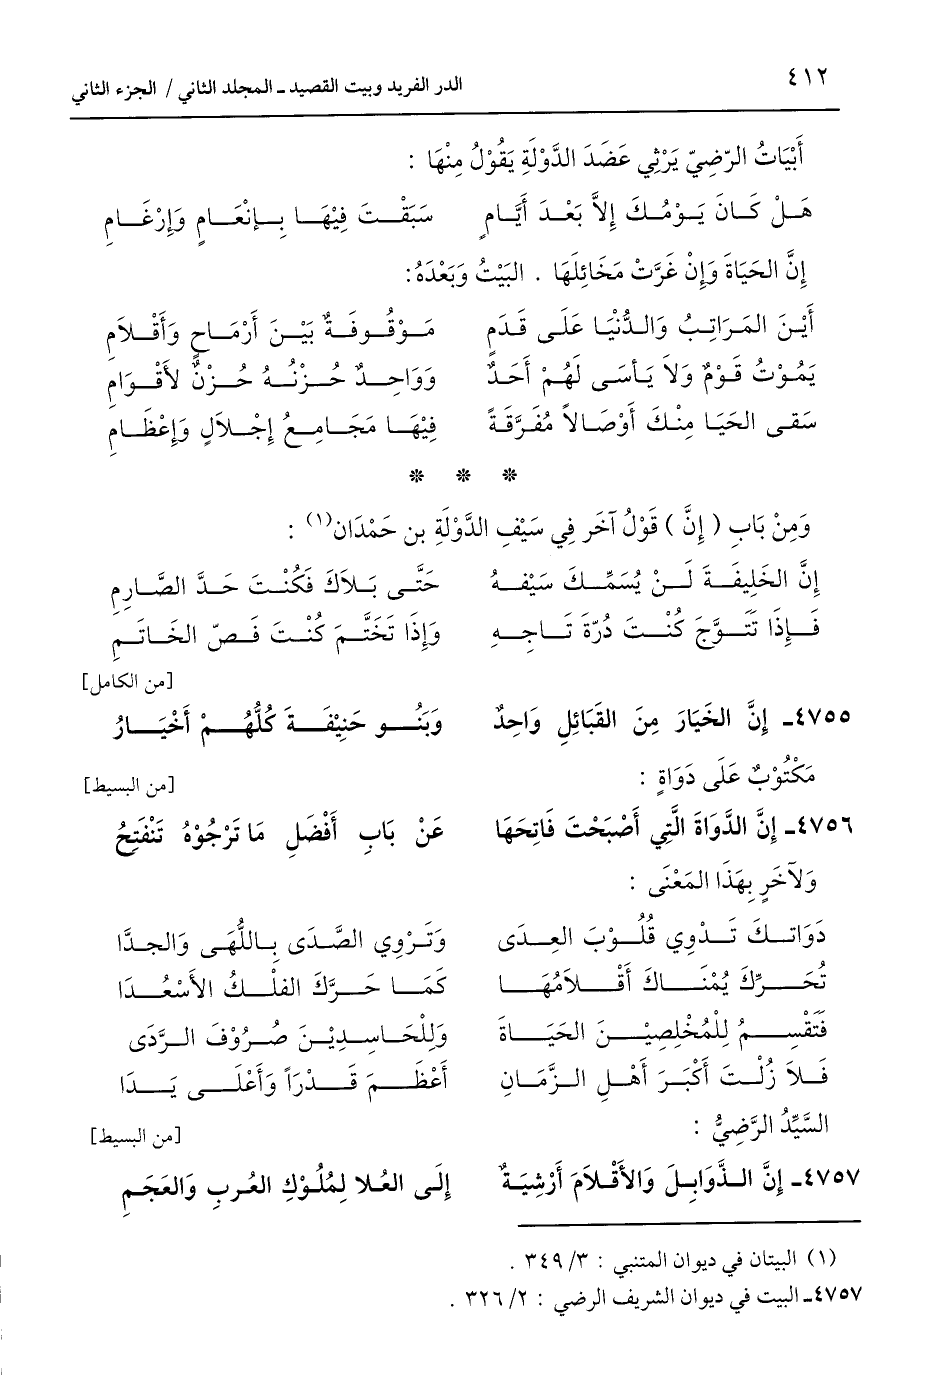 ٤١٢
الدر الفريد وبيت القصيد ـ المجلد الثاني / الجزء الثاني
أَبْيَاتُ الرّضِيّ يَرْثِي عَضَدَ الدَّوْلَةِ يَقُوْلُ مِنْهَا :
هَلْ كَانَ يَوْمُكَ إِلاَّ بَعْدَ أَيَّامٍ سَبَقْتَ فِيْهَا بِإِنْعَامٍ وَإِرْغَامِ
إِنَّ الحَيَاةَ وَإِنْ غَرَّتْ مَخَائِلَهَا . البَيْتُ وَبَعْدَهُ:
أَيْنَ المَرَاتِبُ وَالدُّنْيَا عَلَى قَدَمٍ مَوْقُوفَةٌ بَيْنَ أَرْمَاحٍ وَأَقْلاَمِ
يَمُوْتُ قَوْمٌ وَلاَ يَأسَى لَهُمْ أَحَدٌ وَوَاحِدٌ حُزْنُهُ حُزْنٌ لأَقْوَامِ
سَقى الحَيَا مِنْكَ أَوْصَالاً مُفَرَّقَةً فِيْهَا مَجَامِعُ إِجْلاَلٍ وَإِعْظَامِ
* * *
وَمِنْ بَابِ ( إِنَّ ) قَوْلُ آخَر فِي سَيْفِ الدَّوْلَةِ بن حَمْدَان(١) :
إِنَّ الخَلِيفَةَ لَمْ يُسَمِّكَ سَيْفَهُ حَتَّى بَلاَكَ فَكُنْتَ حَدَّ الصَّارِمِ
فَإِذَا تَتَوَّجَ كُنْتَ دُرَّةَ تَاجِهِ وَإِذَا تَخَتَّمَ كُنْتَ فَصّ الخَاتَمِ
[من الكامل]
٤٧٥٥ـ إِنَّ الخَيَارَ مِنَ القَبَائِلِ وَاحِدٌ وَبَنُو حَنِيْفَةَ كُلُّهُمْ أَخْيَارُ
مَكْتُوْبٌ عَلَى دَوَاةٍ :
[من البسيط]
٤٧٥٦ـ إِنَّ الدَّوَاةَ الَّتِي أَصْبَحْتَ فَاتِحَهَا عَنْ بَابِ أَفْضَلِ مَا تَرْجُوْهُ تَنْفَتِحُ
وَلآخَرٍ بِهَذَا المَعْنَى :
دَوَاتكَ تَدْوِي قُلُوْبَ العِدَى وَتَرْوِي الصَّدَى بِاللُّهَى وَالجدَّا
تُحَرِّكَ يُمْنَاكَ أَقْلاَمُهَا كَمَا حَرَّكَ الفلْكُ الأَسْعُدَا
فَتَقْسِمُ لِلْمُخْلِصِيْنَ الحَيَاةَ وَلِلْحَاسِدِيْنَ صُرُوْفَ الرَّدَى
فَلاَ زُلْتَ أَكْبَرَ أَهْلِ الزَّمَانِ أَعْظَمَ قَدْرَاً وَأَعْلَى يَدَا
السَّيِّدُ الرَّضِيُّ :
[من البسيط]
٤٧٥٧ـ إِنَّ الذَّوَابِلَ وَالأَقْلاَمَ أَرْشِيَةٌ إِلَى العُلا لِمُلُوْكِ العُربِ وَالعَجَمِ
(١) البيتان في ديوان المتنبي : ٣/ ٣٤٩ .
٤٧٥٧ـ البيت في ديوان الشريف الرضي : ٢/ ٣٢٦ .